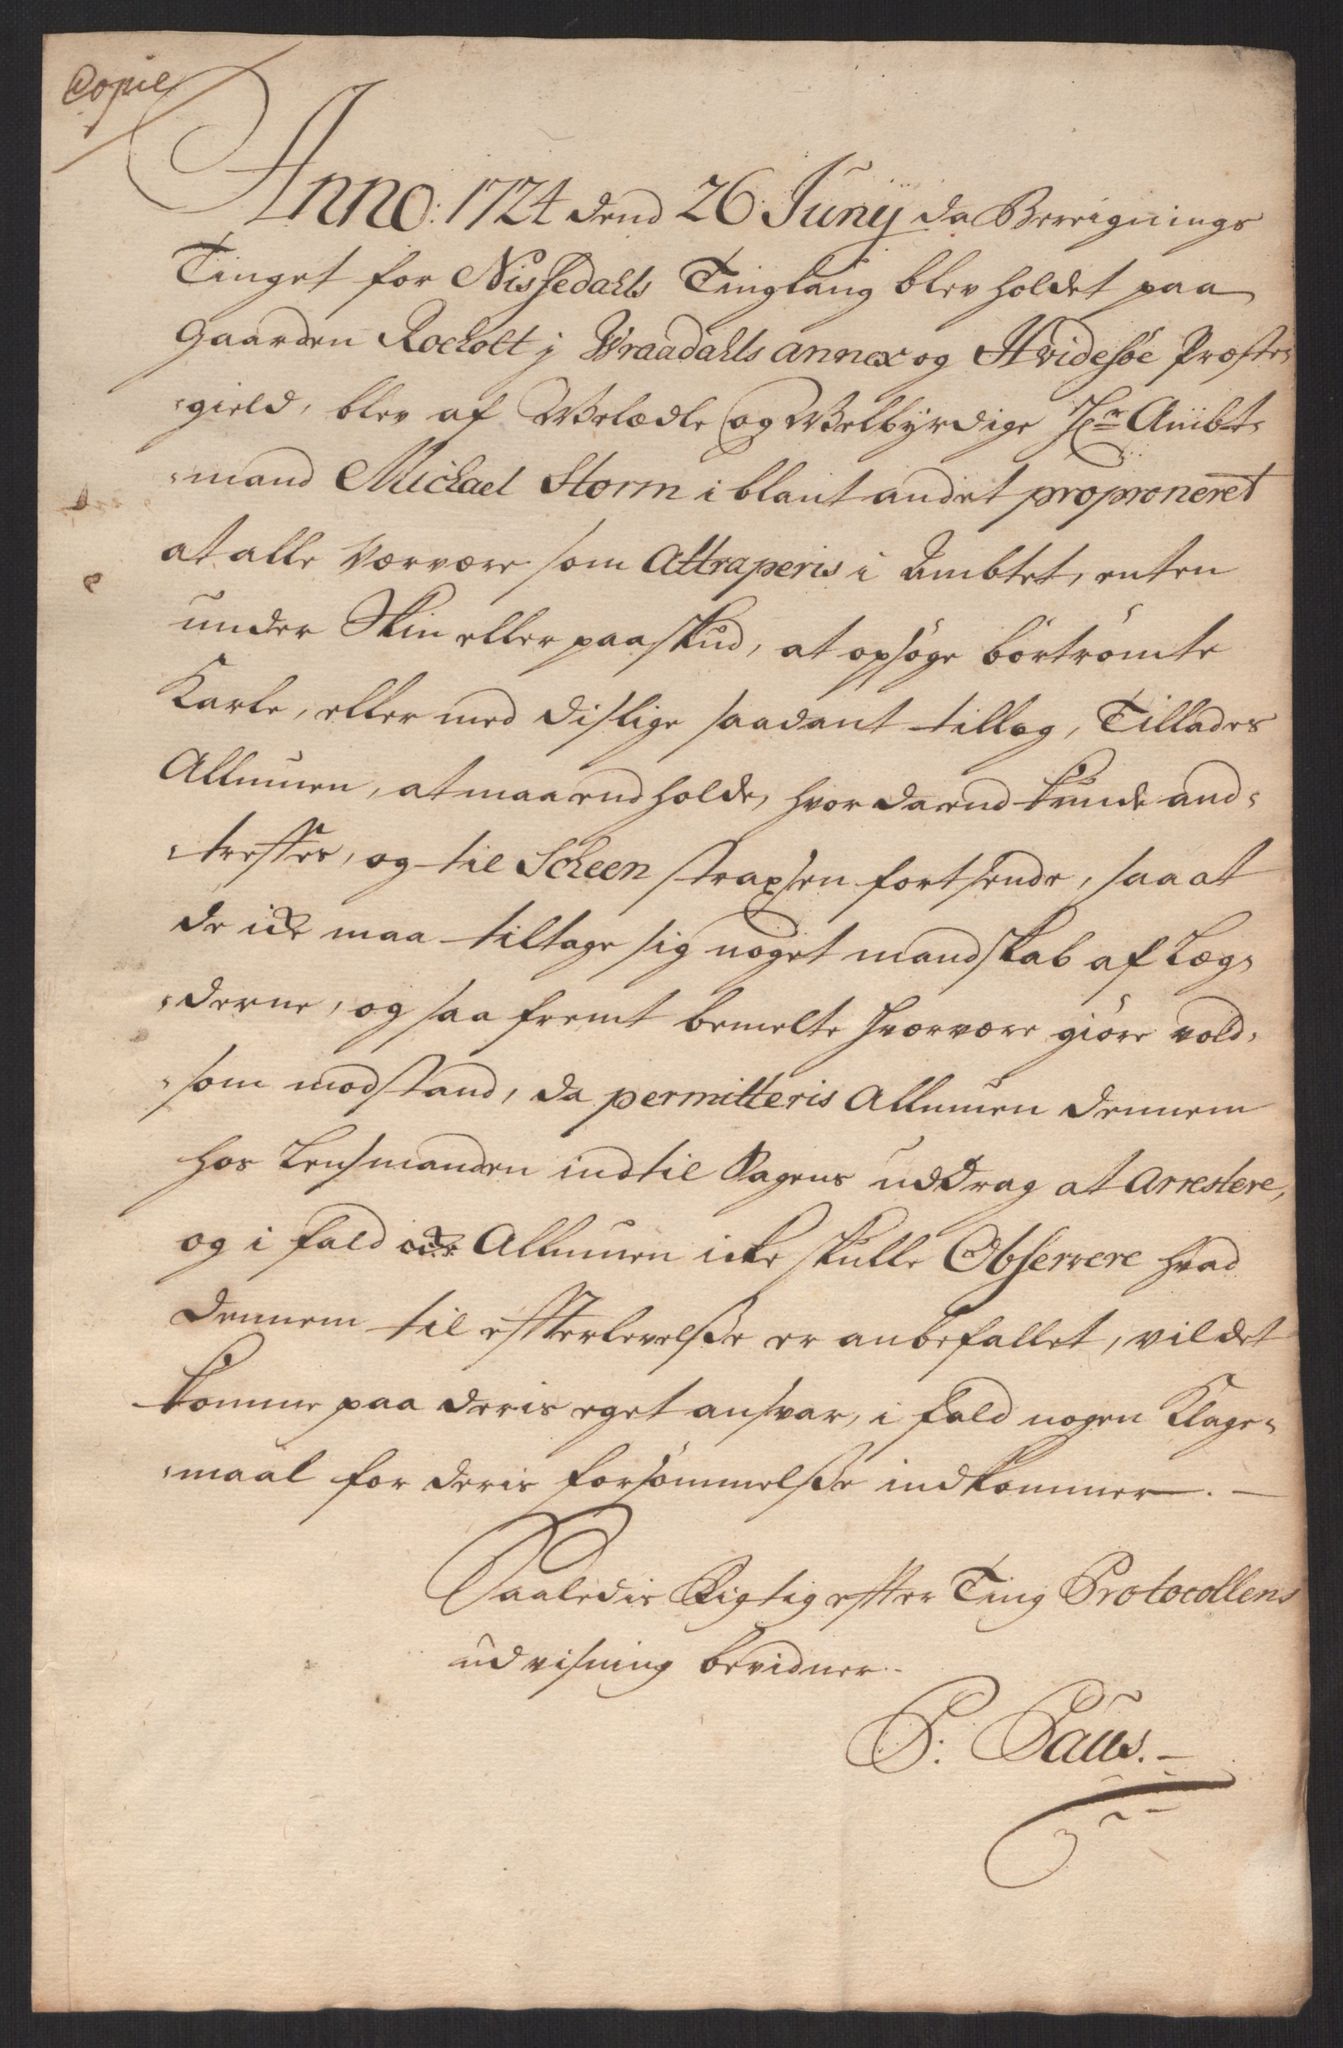 Copie
Anno: 1724 dend 26 Junij da Bereignings
Tinget for Nissedahls Tinglaug blev holdet paa
Gaarden Rocholt j Wraadahls annex og Hvidesöe Præste-
gield, blev af Velædle og Velbyrdige Hr. Ambt-
mand Michael Storm i blant andet proproneret
at alle Værvere som Attraperis i Ambtet, enten
under Skin eller paaskud, at opsöge börtrömte
Karle, eller med dislige saadant tillæg, Tillades
Allmuen, at maa endholde, hvor da end kunde and-
treffes, og til Scheen straxsen fortsende, saa at
de icke maa tiltage sig noget mandskab af Læg-
derne, og saa fremt bemelte hværvere giöre vold-
som modstand, da permitteris Allmuen dennem
hos Lensmanden indtil Sagens uddrag at Arrestere,
og i fald Allmuen icke skulle Observere hvad
dennem til effterlevelsse er anbefallet, vil det
komme paa deris eget ansvar, i fald nogen Klage-
maal for deris forsömmelsse indkommer. —
Saaledis Rigtig effter Ting Protocollens
udvisning bevidner.
P: Paus.